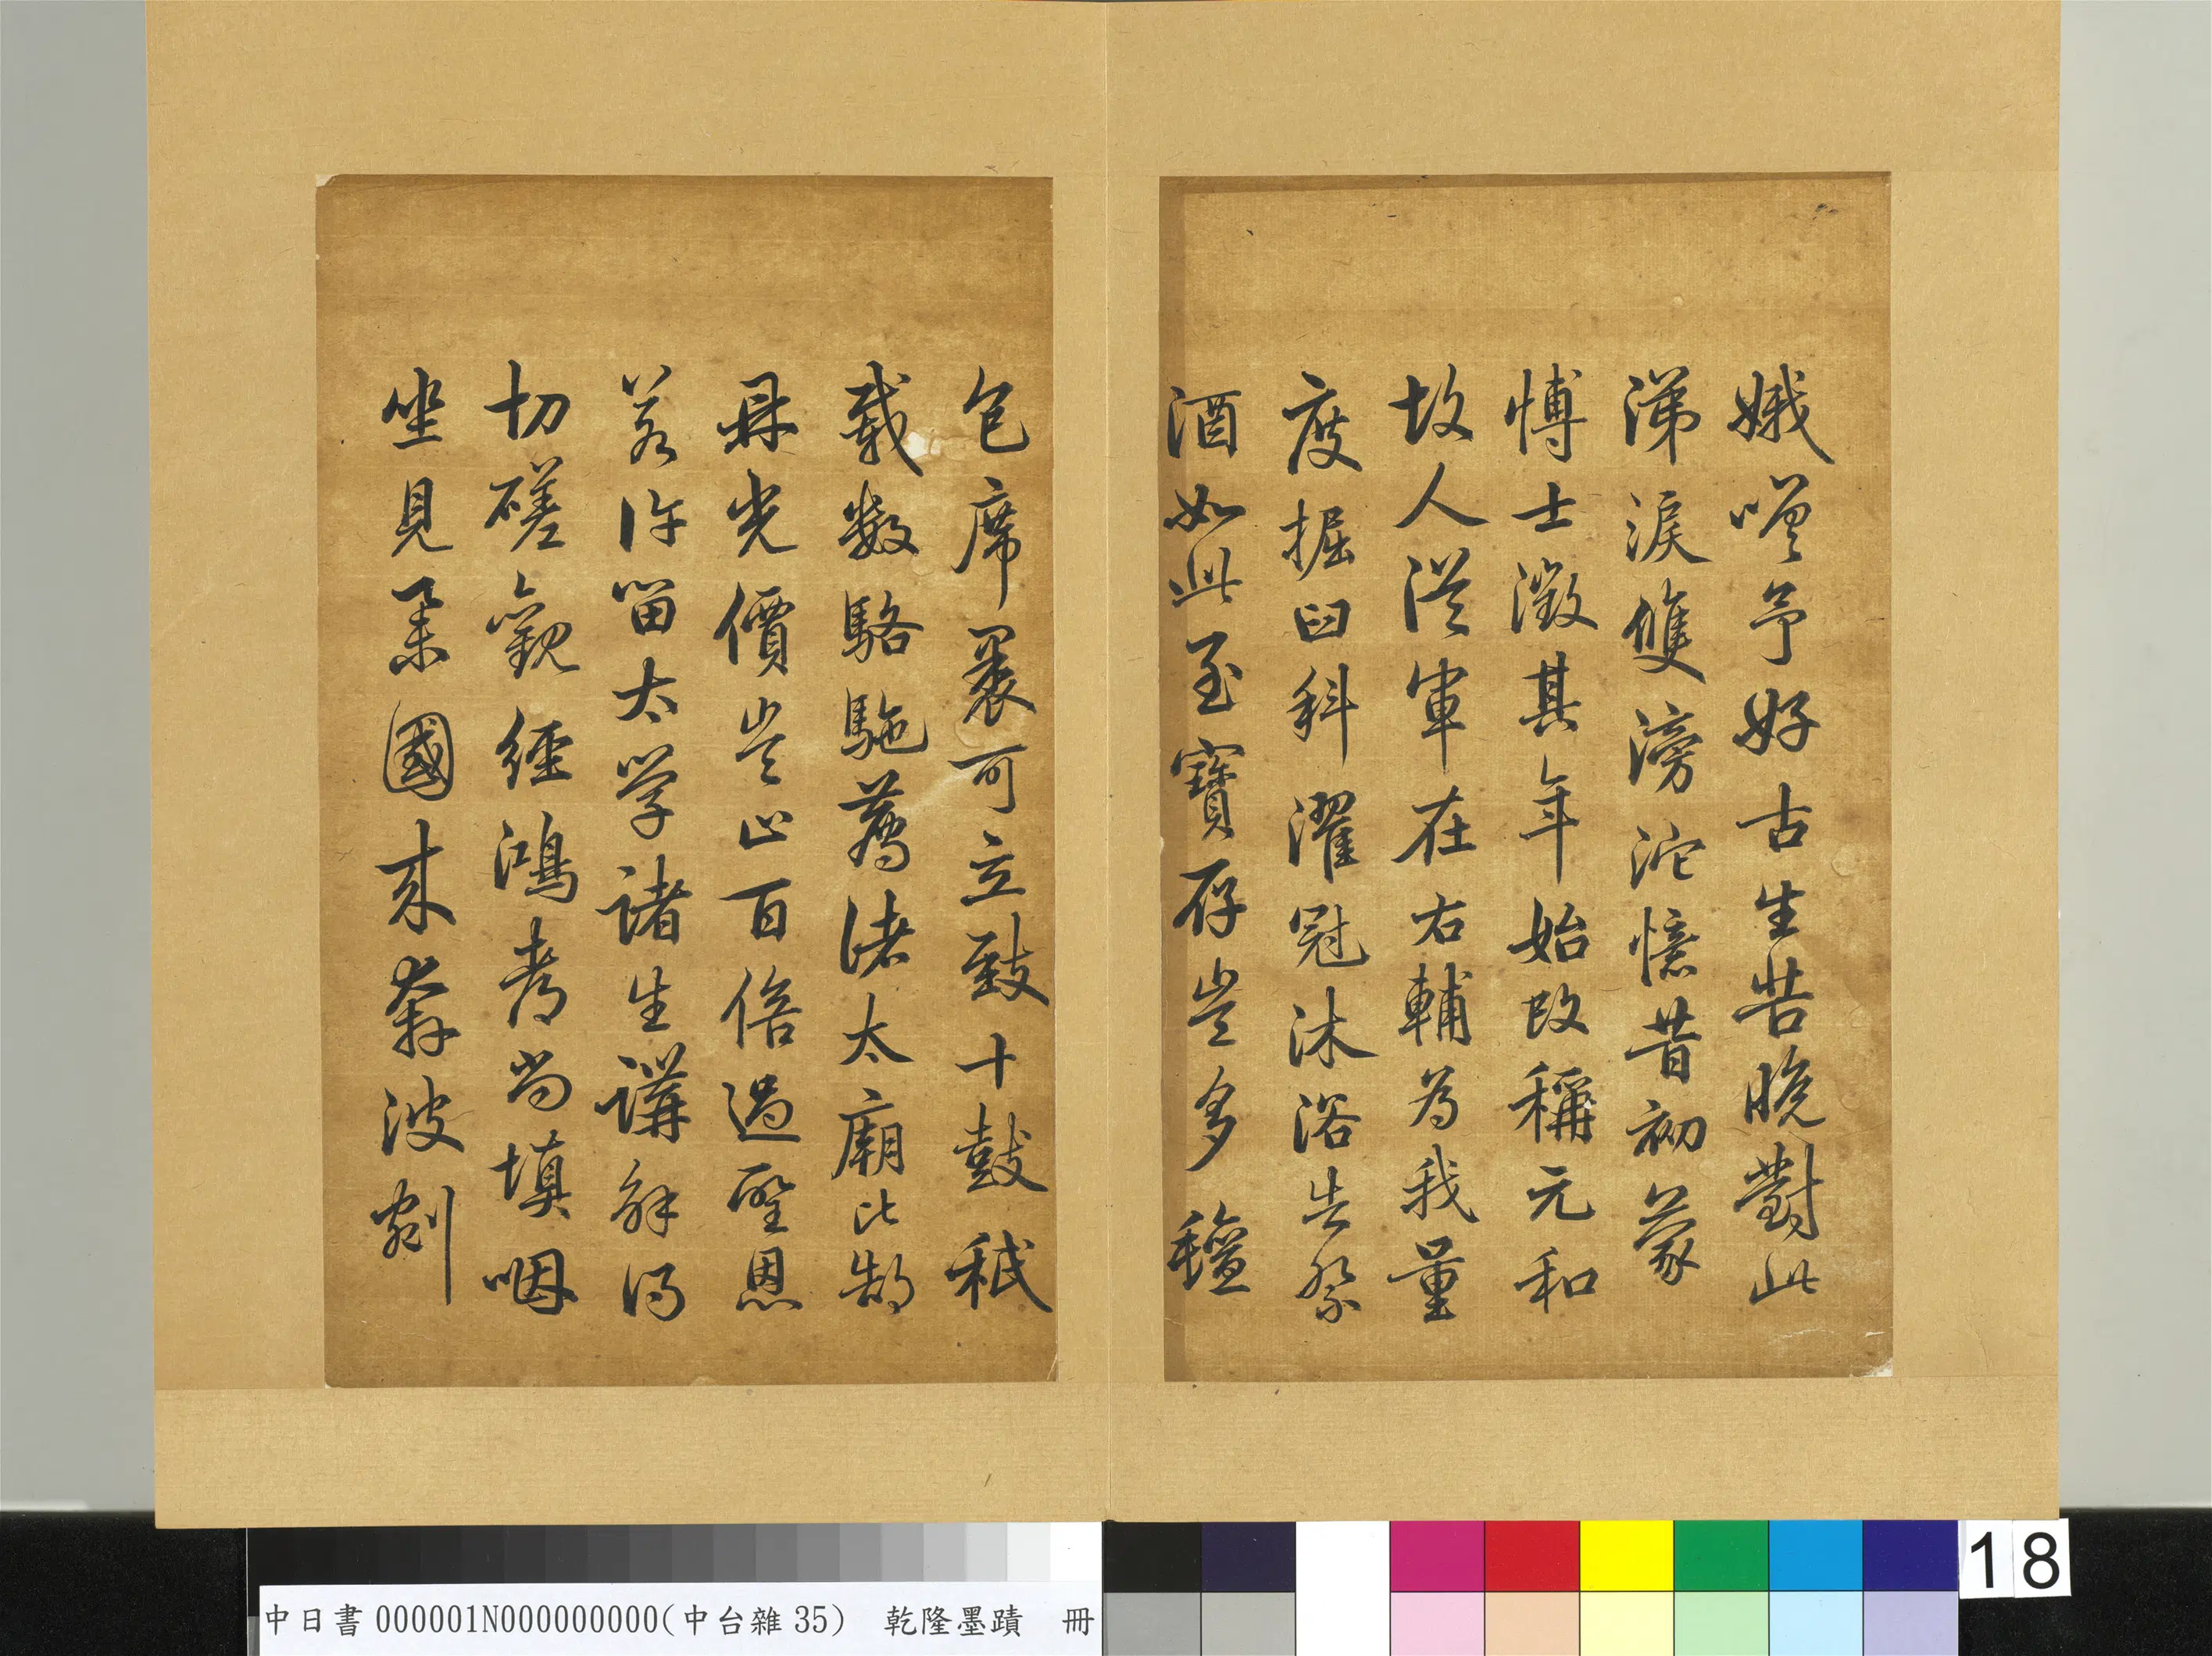 娥嗟予好古生苦晚對此
涕淚雙滂沱憶昔初蒙
博士徵其年始改稱元和
故人從軍在右輔為我量
度掘臼科濯冠沐浴告祭
酒如此至寶存豈多氊
包席裹可立致十鼓秖
載數駱駞薦諸太廟比郜
鼎光價豈止百倍過聖恩
若許留太學諸生講解得
切磋觀經鴻都尚填咽
坐見舉國來奔波剜
中日書 000001N000000000(中台雜 35) 乾隆墨蹟 冊
18